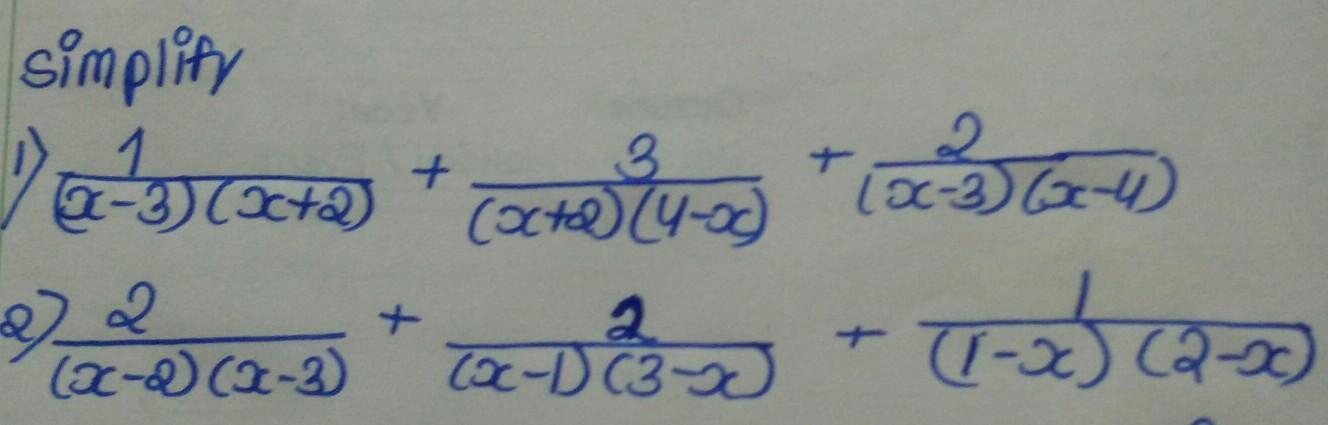 simplify
1) 1/((x-3)(x+2)) + 3/((x+2)(4-x)) + 2/((x-3)(x-4))
2) 2/((x-2)(x-3)) + 2/((x-1)(3-x)) + 1/((1-x)(2-x))